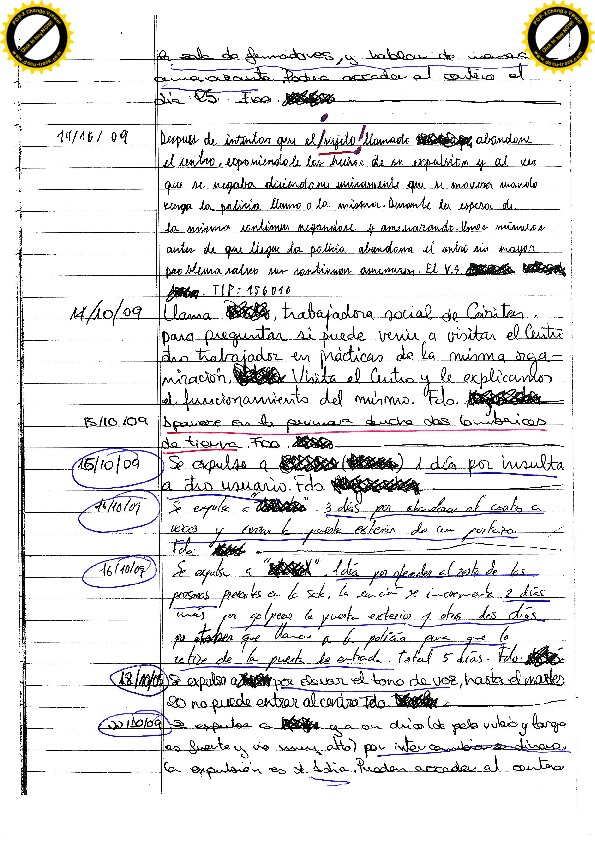 sala de fumadores, y hablan de manera
amenazante. Podra acceder al centro el
dia 25. Fdo.
14/10/09 Despues de intentar que el "sujeto" llamado abandone
el centro, exponiendole los de su expulsión y al ver
que se negaba diciendome unicamente que se movera cuando
venga la policia llamo a la misma. Durante la espera de
la misma continua negandose y amenazando. Unos minutos
antes de que llegue la policia abandona el centro sin mayor
problema salvo sus continuas amenazas. El V.S.
TIP: 156016
14/10/09 Llama , trabajadora social de Cáritas.
para preguntar si puede venir a visitar el Centro
otro trabajador en prácticas de la misma orga-
nización. Visita el Centro y le explicamos
el funcionamiento del mismo. Fdo.
15/10/09 Aparece en la primera ducha dos lombrices
de tierra. Fdo.
15/10/09 Se expulsa a ( ) 1 día por insulta
a otro usuario. Fdo.
16/10/09 Se expulsa a " " 3 días por abandonar el centro a
voces y cerrar la puerta exterior de un portazo.
Fdo:
16/10/09 Se expulsa a " ". 1 día por ofender al resto de las
personas presentes en la sala, la sanción se incrementa 2 días
más por golpear la puerta exterior y otros dos días
por que llamar a la policía para que lo
retire de la puerta de entrada. Total 5 días. Fdo.
18/10/09 Se expulsa a por elevar el tono de voz, hasta el martes
20 no puede entrar al centro Fdo.
20/10/09 Se expulsa a y a un chico (de pelo rubio y largo
es fuerte y va muy alto) por intercambiarse dinero.
La expulsión es de 1 dia. Pueden acceder al centro